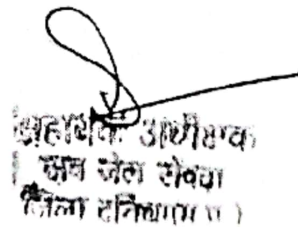 सहायक अधीक्षक
सब जेल सेवढा
जिला दतिया म प्र )